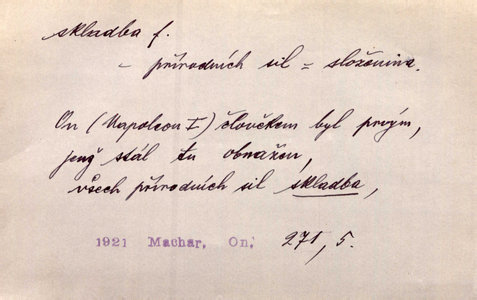 skladba f.
– přírodních sil = složenina.
On (Napoleon I) člověkem byl prvým,
jenž stál tu obnažen,
všech přírodních sil skladba,
1921 Machar, On, 271, 5.